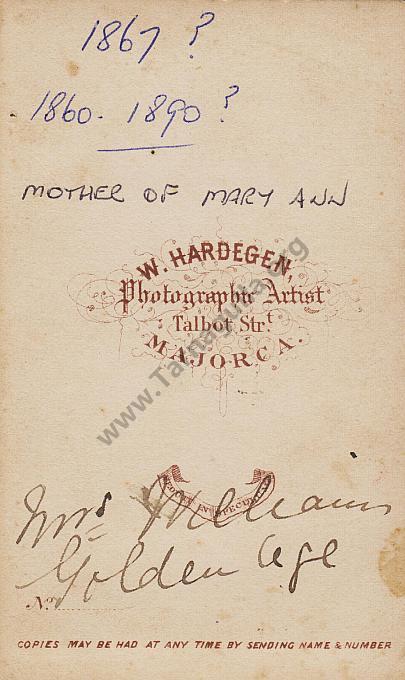 1867 ?
1860 - 1890 ?
MOTHER OF MARY ANN
W. HARDEGEN,
Photographic Artist
Talbot Strt.
MAJORCA.
www.Tarnagulla.org
Mrs Williams
Golden Age
No.
COPIES MAY BE HAD AT ANY TIME BY SENDING NAME & NUMBER